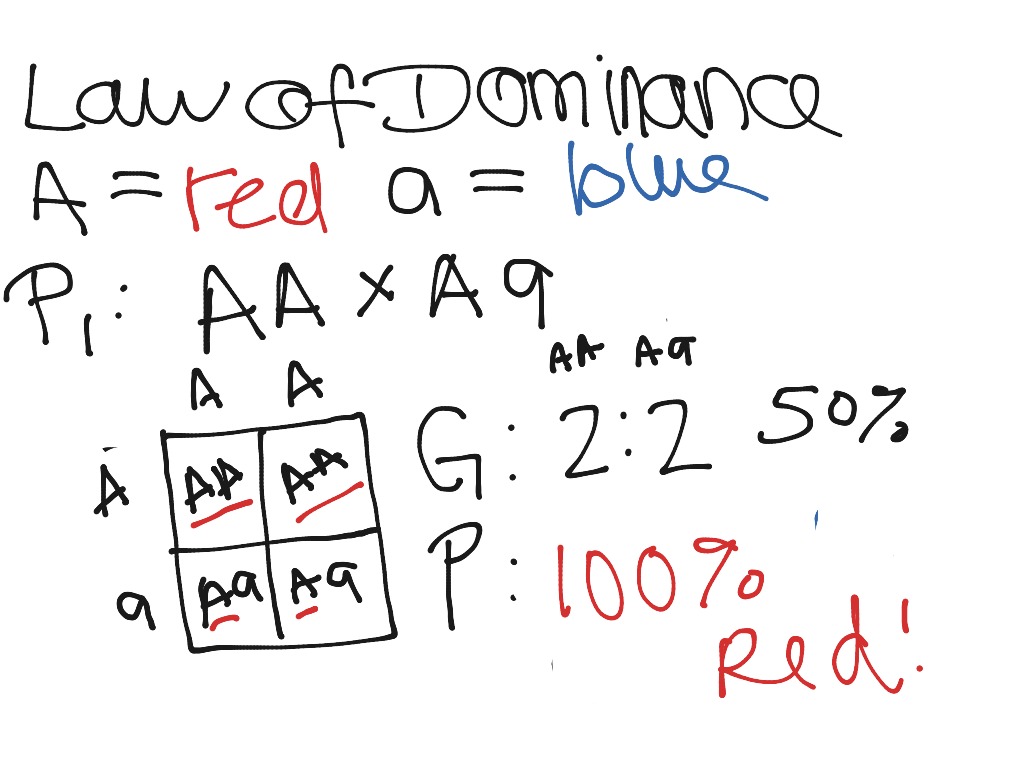 Law of Dominance
A = red a = blue
P1: AA x Aa
AA Aa
A A
G: 2:2 50%
A AA AA
P: 100%
a Aa Aa
Red!